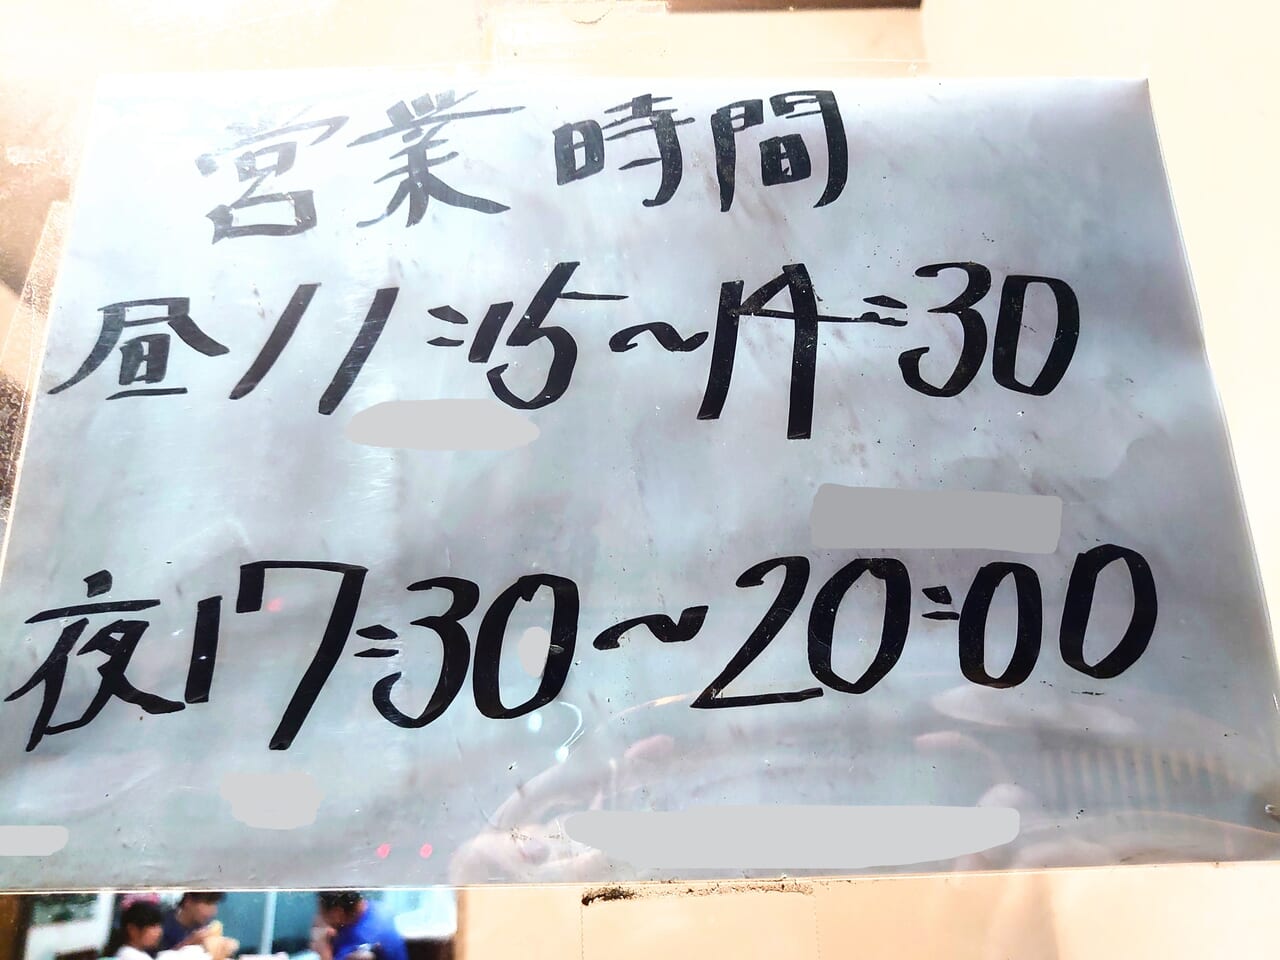 営業時間
昼11:15~14:30
夜17:30~20:00